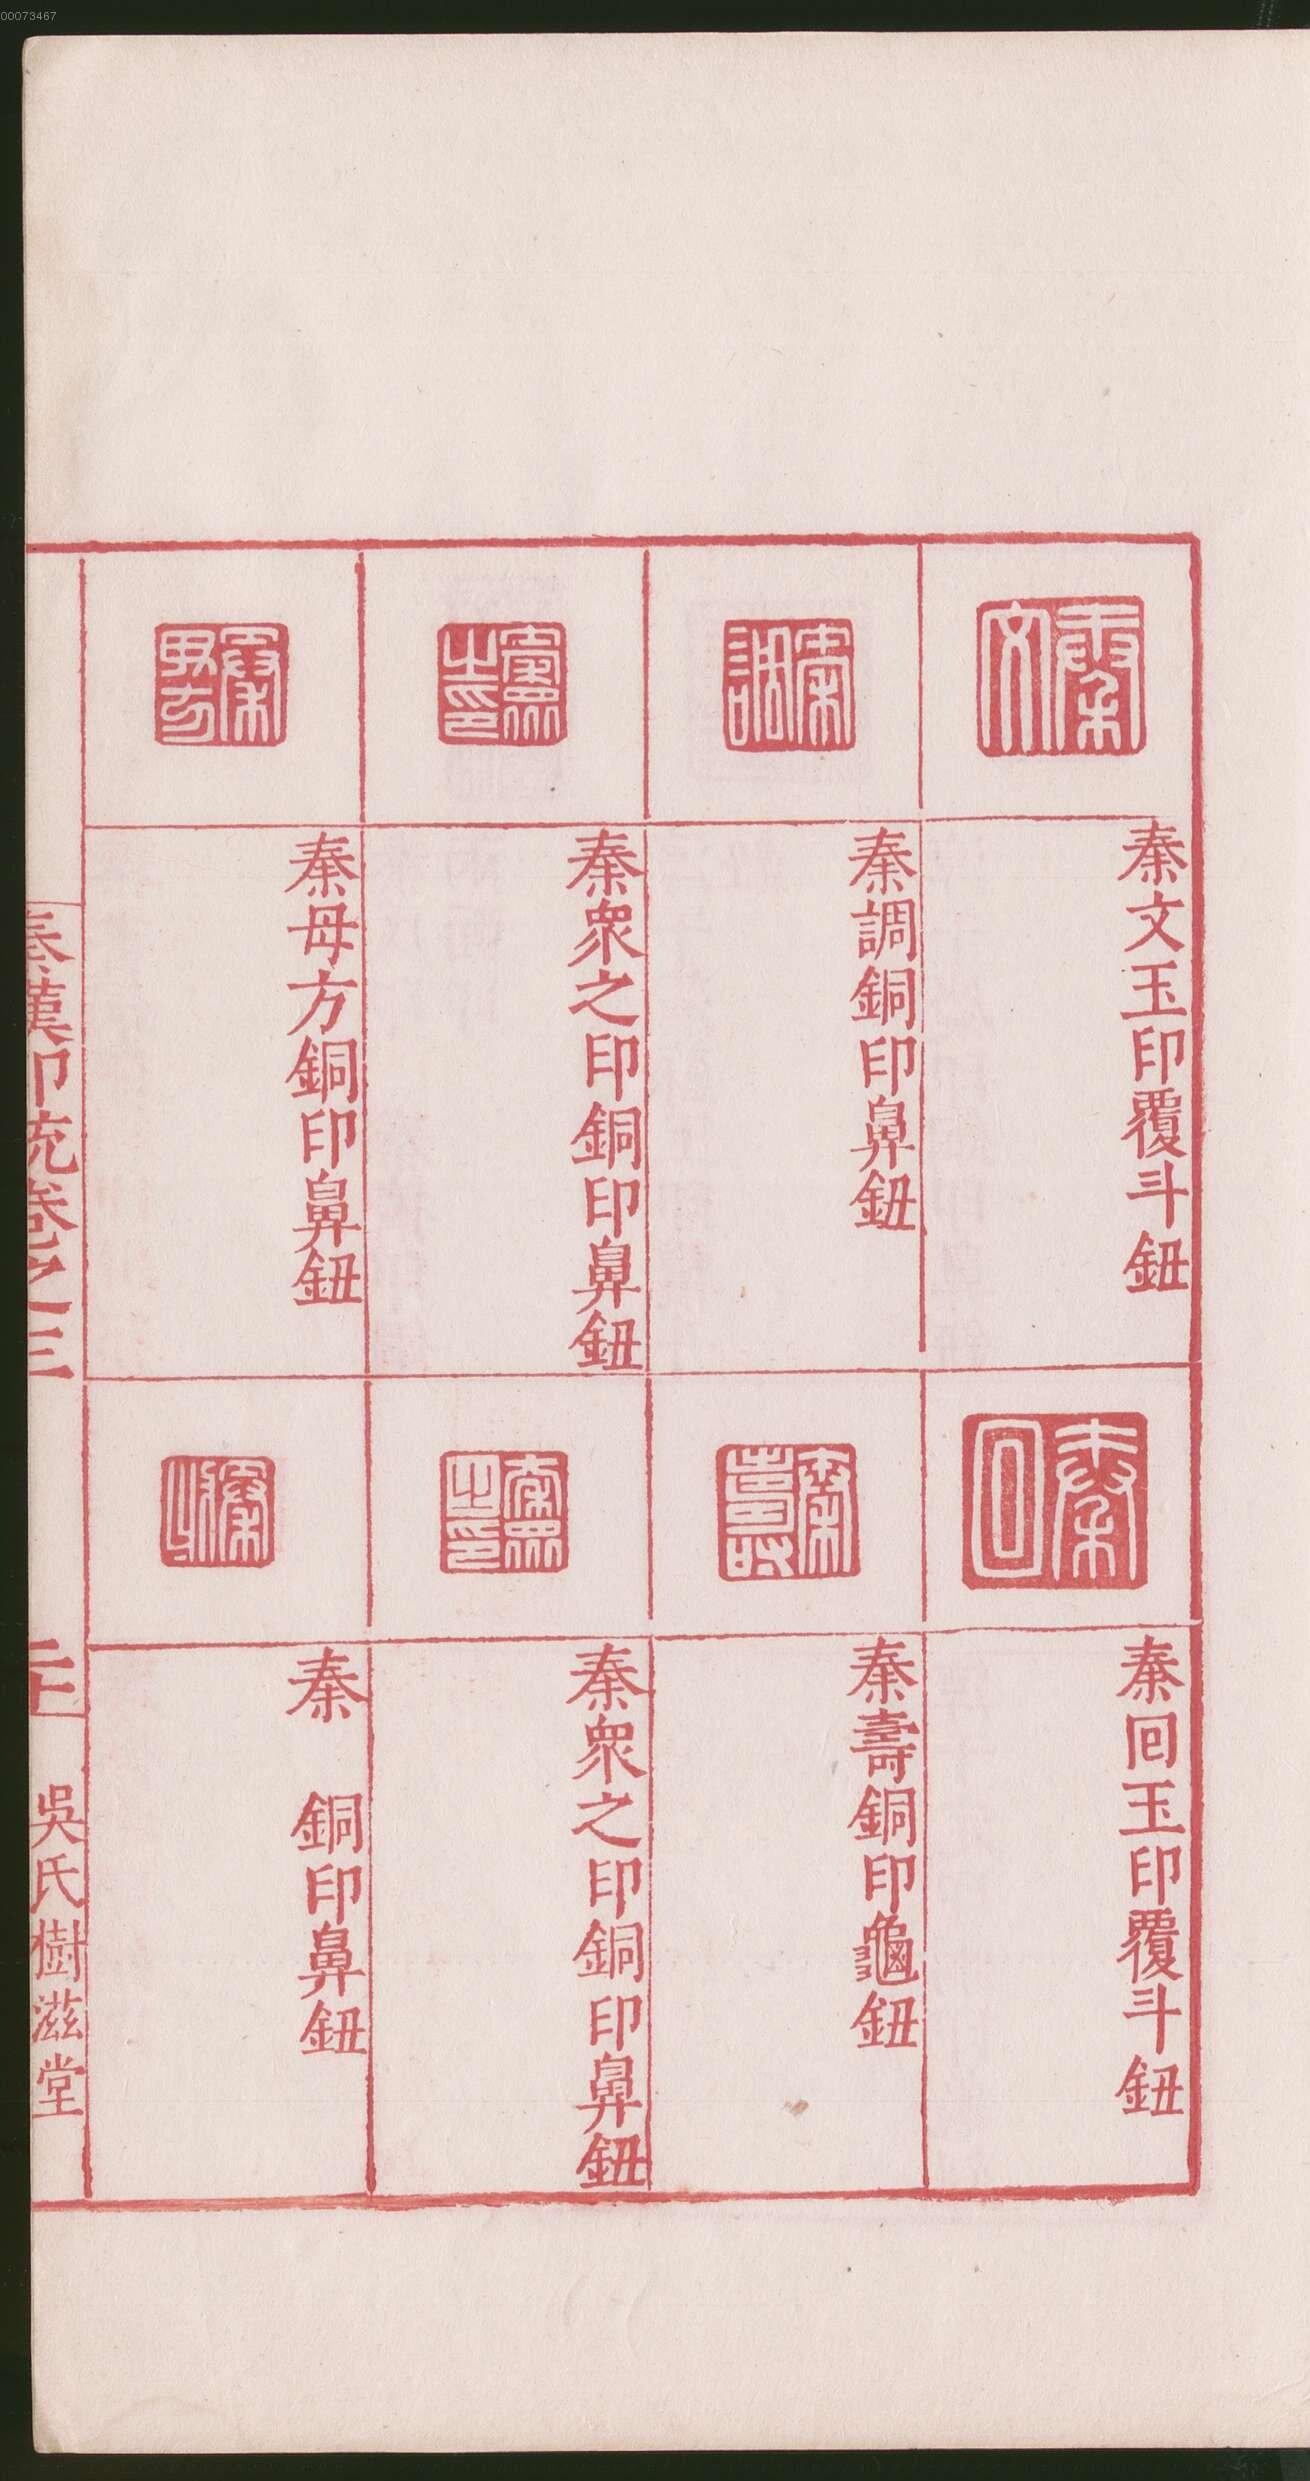 00073467
秦文玉印覆斗鈕
秦調銅印鼻鈕
秦衆之印銅印鼻鈕
秦母方銅印鼻鈕
秦回玉印覆斗鈕
秦壽銅印龜鈕
秦衆之印銅印鼻鈕
秦 銅印鼻鈕
秦漢印統卷之三
吳氏樹滋堂
秦文
秦調
秦衆之印
秦母方
秦回
秦衆之印